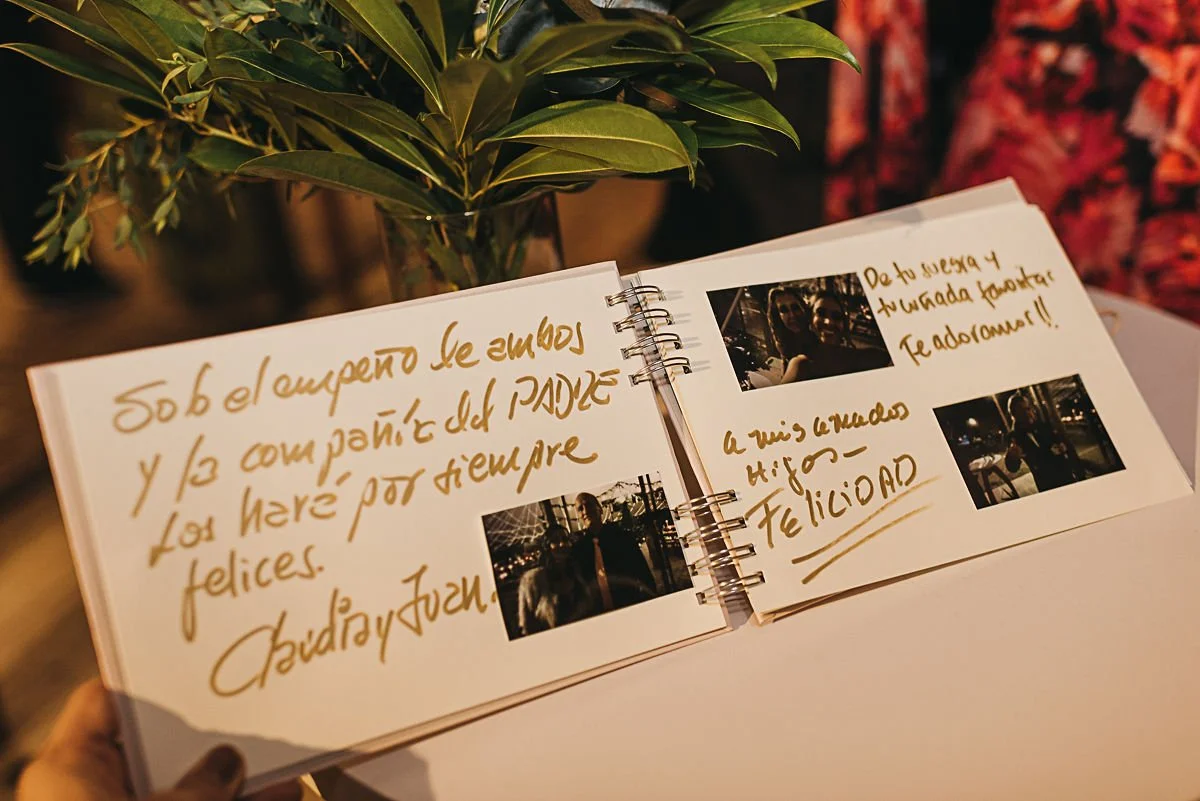 Solo el empeño de ambos
y la compañía del PADRE
Los hará por siempre
felices.
Claudia y Juan.
De tu suegra y
tu cuñada favorita
Te adoramos!!
a mis amados
Hijos-
FELICIDAD